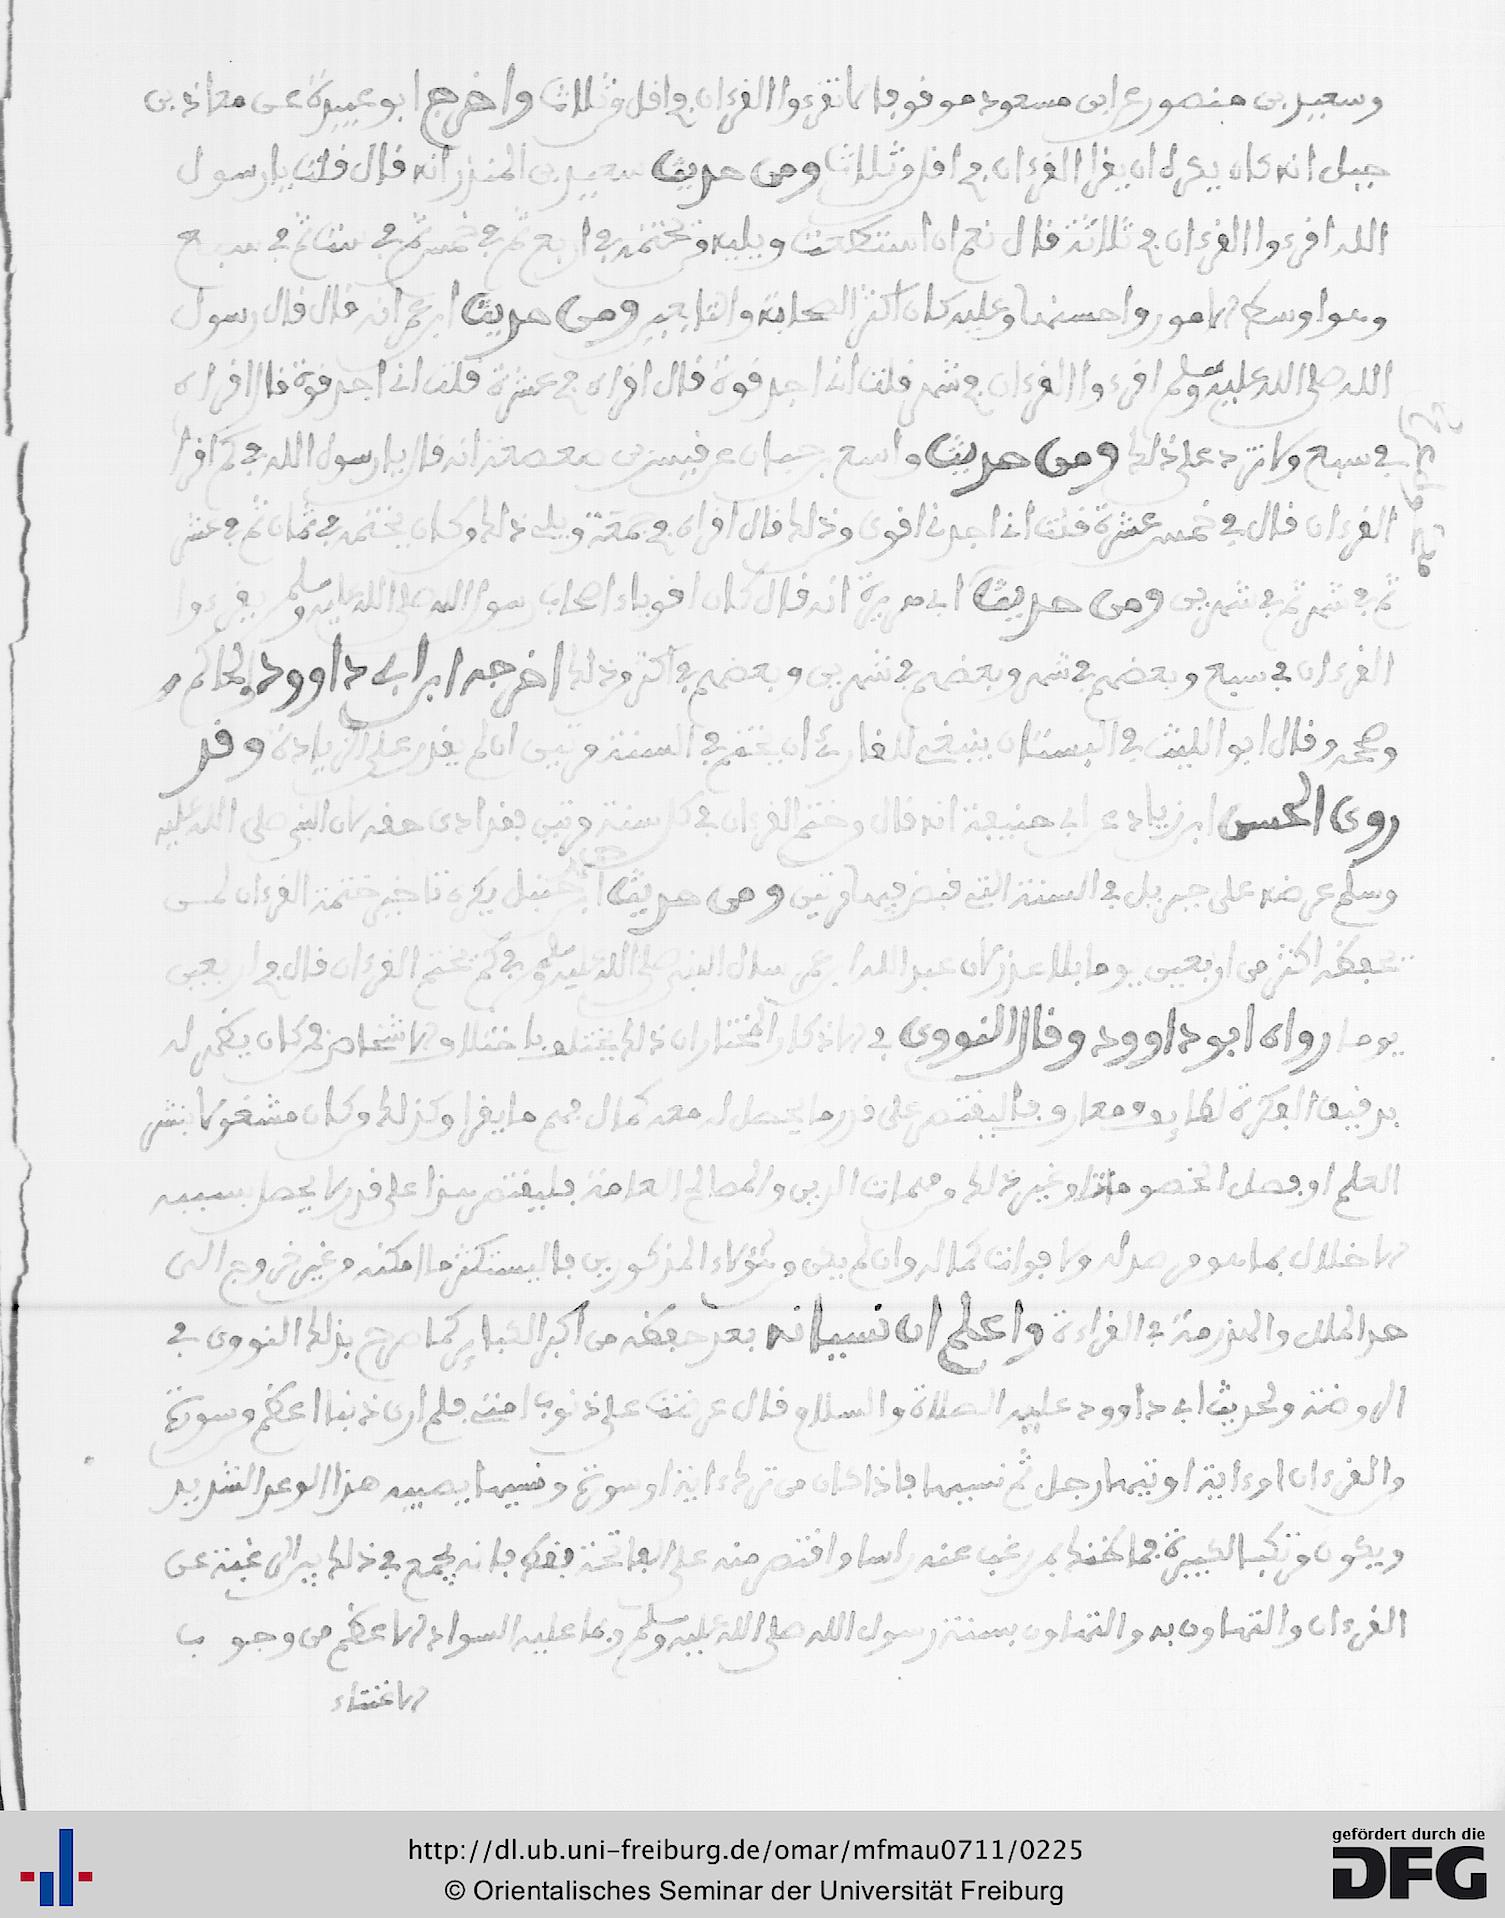 وسعيد بن منصور عن ابن مسعود موقوفا لا تقرءوا القرءان في اقل من ثلاث واخرج ابو عبيدة عن معاذ بن
جبل انه كان يكره ان يقرا القرءان في اقل من ثلاث ومن حديث سعيد بن المنذر انه قال قلت يا رسول
الله اقرءوا القرءان في ثلاثة قال نعم ان استطعت ويليه من يختمه في اربع ثم في خمس ثم في ست ثم في سبع
وهو اوسط الامور واحسنها وعليه كان اكثر الصحابة والتابعين ومن حديث ابن عمر انه قال قال رسول
الله صلى الله عليه وسلم اقرءوا القرءان في شهر قلت اني اجد قوة قال اقراه في عشرة قلت اني اجد قوة قال اقراه
في سبع ولا تزد على ذلك ومن حديث واسع بن حبان عن قيس بن صعصعة انه قال يا رسول الله في كم اقرا
القرءان قال في خمس عشرة قلت اني اجدني اقوى من ذلك قال اقراه في جمعة ويلي ذلك من كان يختمه في ثمان ثم في عشر
ثم في شهر ثم في شهرين ومن حديث ابي هريرة انه قال كان اقوياء اصحاب رسول الله صلى الله عليه وسلم يقرءوا
القرءان في سبع وبعضهم في شهر وبعضهم في شهرين وبعضهم في اكثر من ذلك اخرجه ابن ابي داوود والحاكم
وصححه وقال ابو الليث في البستان ينبغي للقارئ ان يختم في السنة مرتين ان لم يقدر على الزيادة وقد
روى الحسن ابن زياد عن ابي حنيفة انه قال من ختم القرءان في كل سنة مرتين فقد ادى حقه لان النبي صلى الله عليه
وسلم عرضه على جبريل في السنة التي قبض فيها مرتين ومن حديث ابن حنبل يكره تاخير ختمة القرءان لمن
يحفظه اكثر من اربعين يوما بلا عذر لان عبد الله ابن عمر سال النبي صلى الله عليه وسلم في كم يختم القرءان قال في اربعين
يوما رواه ابو داوود وقال النووي في الاذكار المختار ان ذلك يختلف باختلاف الاشخاص فمن كان يظهر له
بدقيق الفكرة لطايف ومعارف فليقتصر على قدر ما يحصل له معه كمال فهم ما يقرا وكذلك من كان مشغولا بنشر
العلم او فصل الخصومات او غير ذلك من مهمات الدين والمصالح العامة فليقتصر هذا على قدر لا يحصل بسببه
الاخلال بما هو مرصد له ولا فوات كماله وان لم يكن من هؤلاء المذكورين فاليستكثر ما امكنه من غير خروج الى
حد الملل والهذرمة في القراءة واعلم ان نسيانه بعد حفظه من اكبر الكباير كما صرح بذلك النووي في
الروضة ولحديث ابي داوود عليه الصلاة والسلام قال عرضت علي ذنوب امتي فلم ارى ذنبا اعظم من سورة
من القرءان او ءاية اوتيها رجل ثم نسيها فاذا كان من ترك ءاية او سورة ونسيها يصيبه هذا الوعد الشديد
ويكون مرتكب الكبيرة فما ظنك بمن رغب عنه راسا واقتصر منه على الفاتحة فقط فانه يجمع في ذلك بين الرغبة عن
القرءان والتهاون به والتهاون بسنة رسول الله صلى الله عليه وسلم وما عليه السواد الاعظم من وجوب
الاعتناء